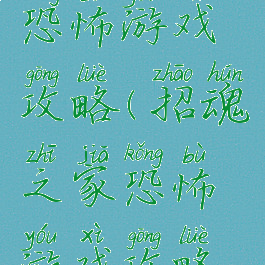 恐怖游戏
gōng lüè zhāo hún
攻略(招魂
zhī jiā kǒng bù
之家恐怖
yóu xì gōng lüè
游戏攻略